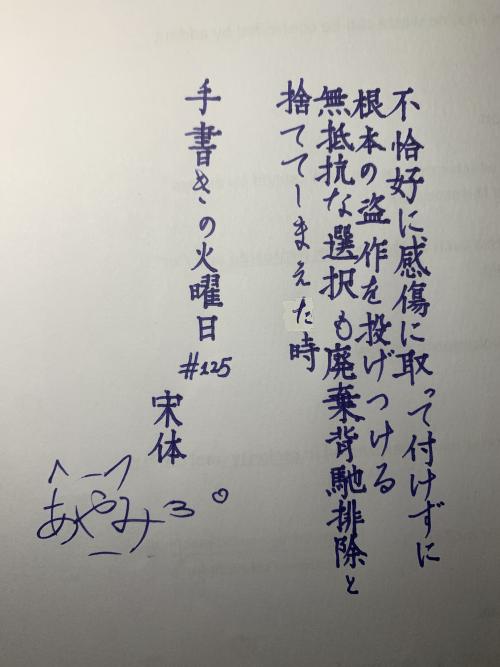 不恰好に感傷に取って付けずに
根本の盗作を投げつける
無抵抗な選択も廃棄背馳排除と
捨ててしまえた時
手書きの火曜日
#125
宋体
あやみ3♡